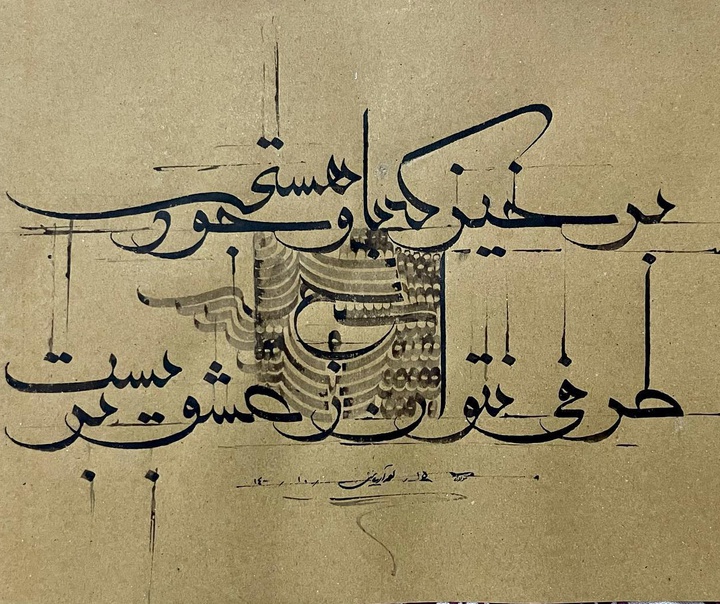 برخیز که با وجود هستی
طرفی نتوان ز عشق بر بست